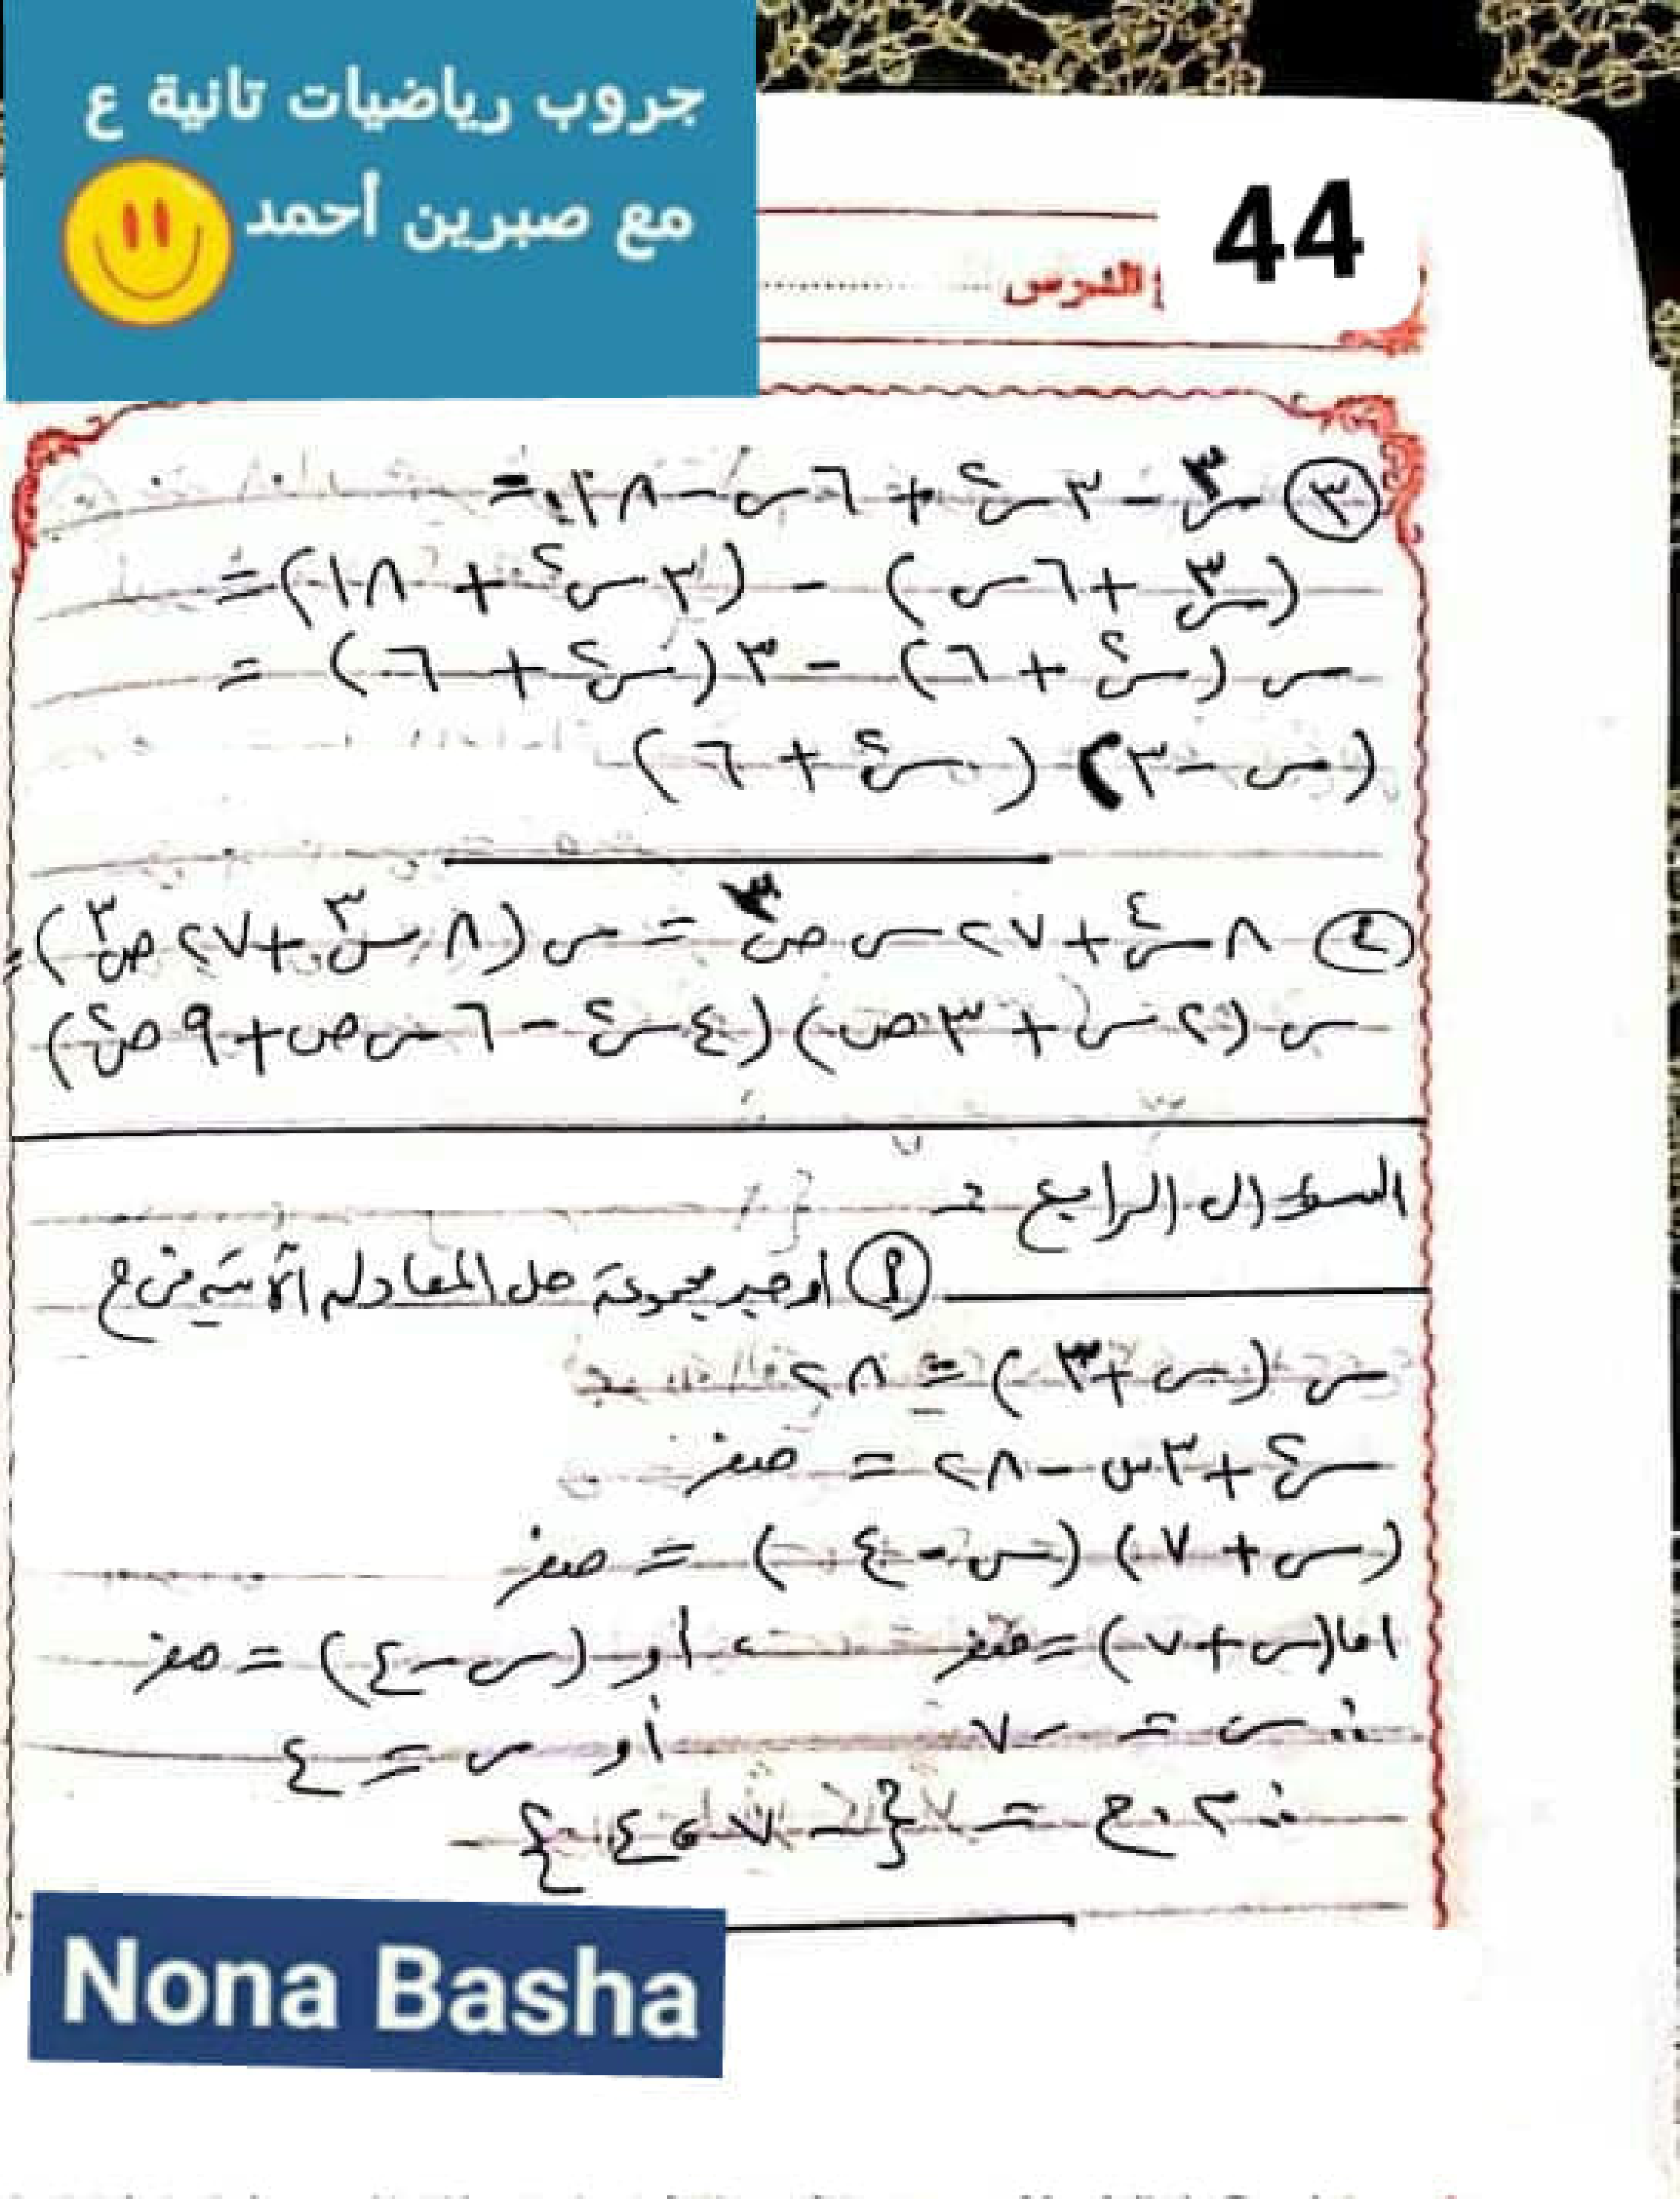 جروب رياضيات تانية ع
مع صبرين أحمد
44
الدرس
٣ س٣ - ٣س٢ + ٦س - ١٨ =
(س٣ + ٦س) - (٣س٢ + ١٨) =
س(س٢ + ٦) - ٣(س٢ + ٦) =
(س - ٣) (س٢ + ٦)
٤ ٨س٤ + ٢٧ س ص٣ = س(٨س٣ + ٢٧ص٣) =
س(٢س + ٣ص) (٤س٢ - ٦س ص + ٩ص٢)
السؤال الرابع :-
أ أوجد مجموعة حل المعادلة الآتية في ح
س(س + ٣) = ٢٨
س٢ + ٣س - ٢٨ = صفر
(س + ٧) (س - ٤) = صفر
اما (س + ٧) = صفر أو (س - ٤) = صفر
∴ س = -٧ أو س = ٤
∴ م.ح = {-٧، ٤}
Nona Basha